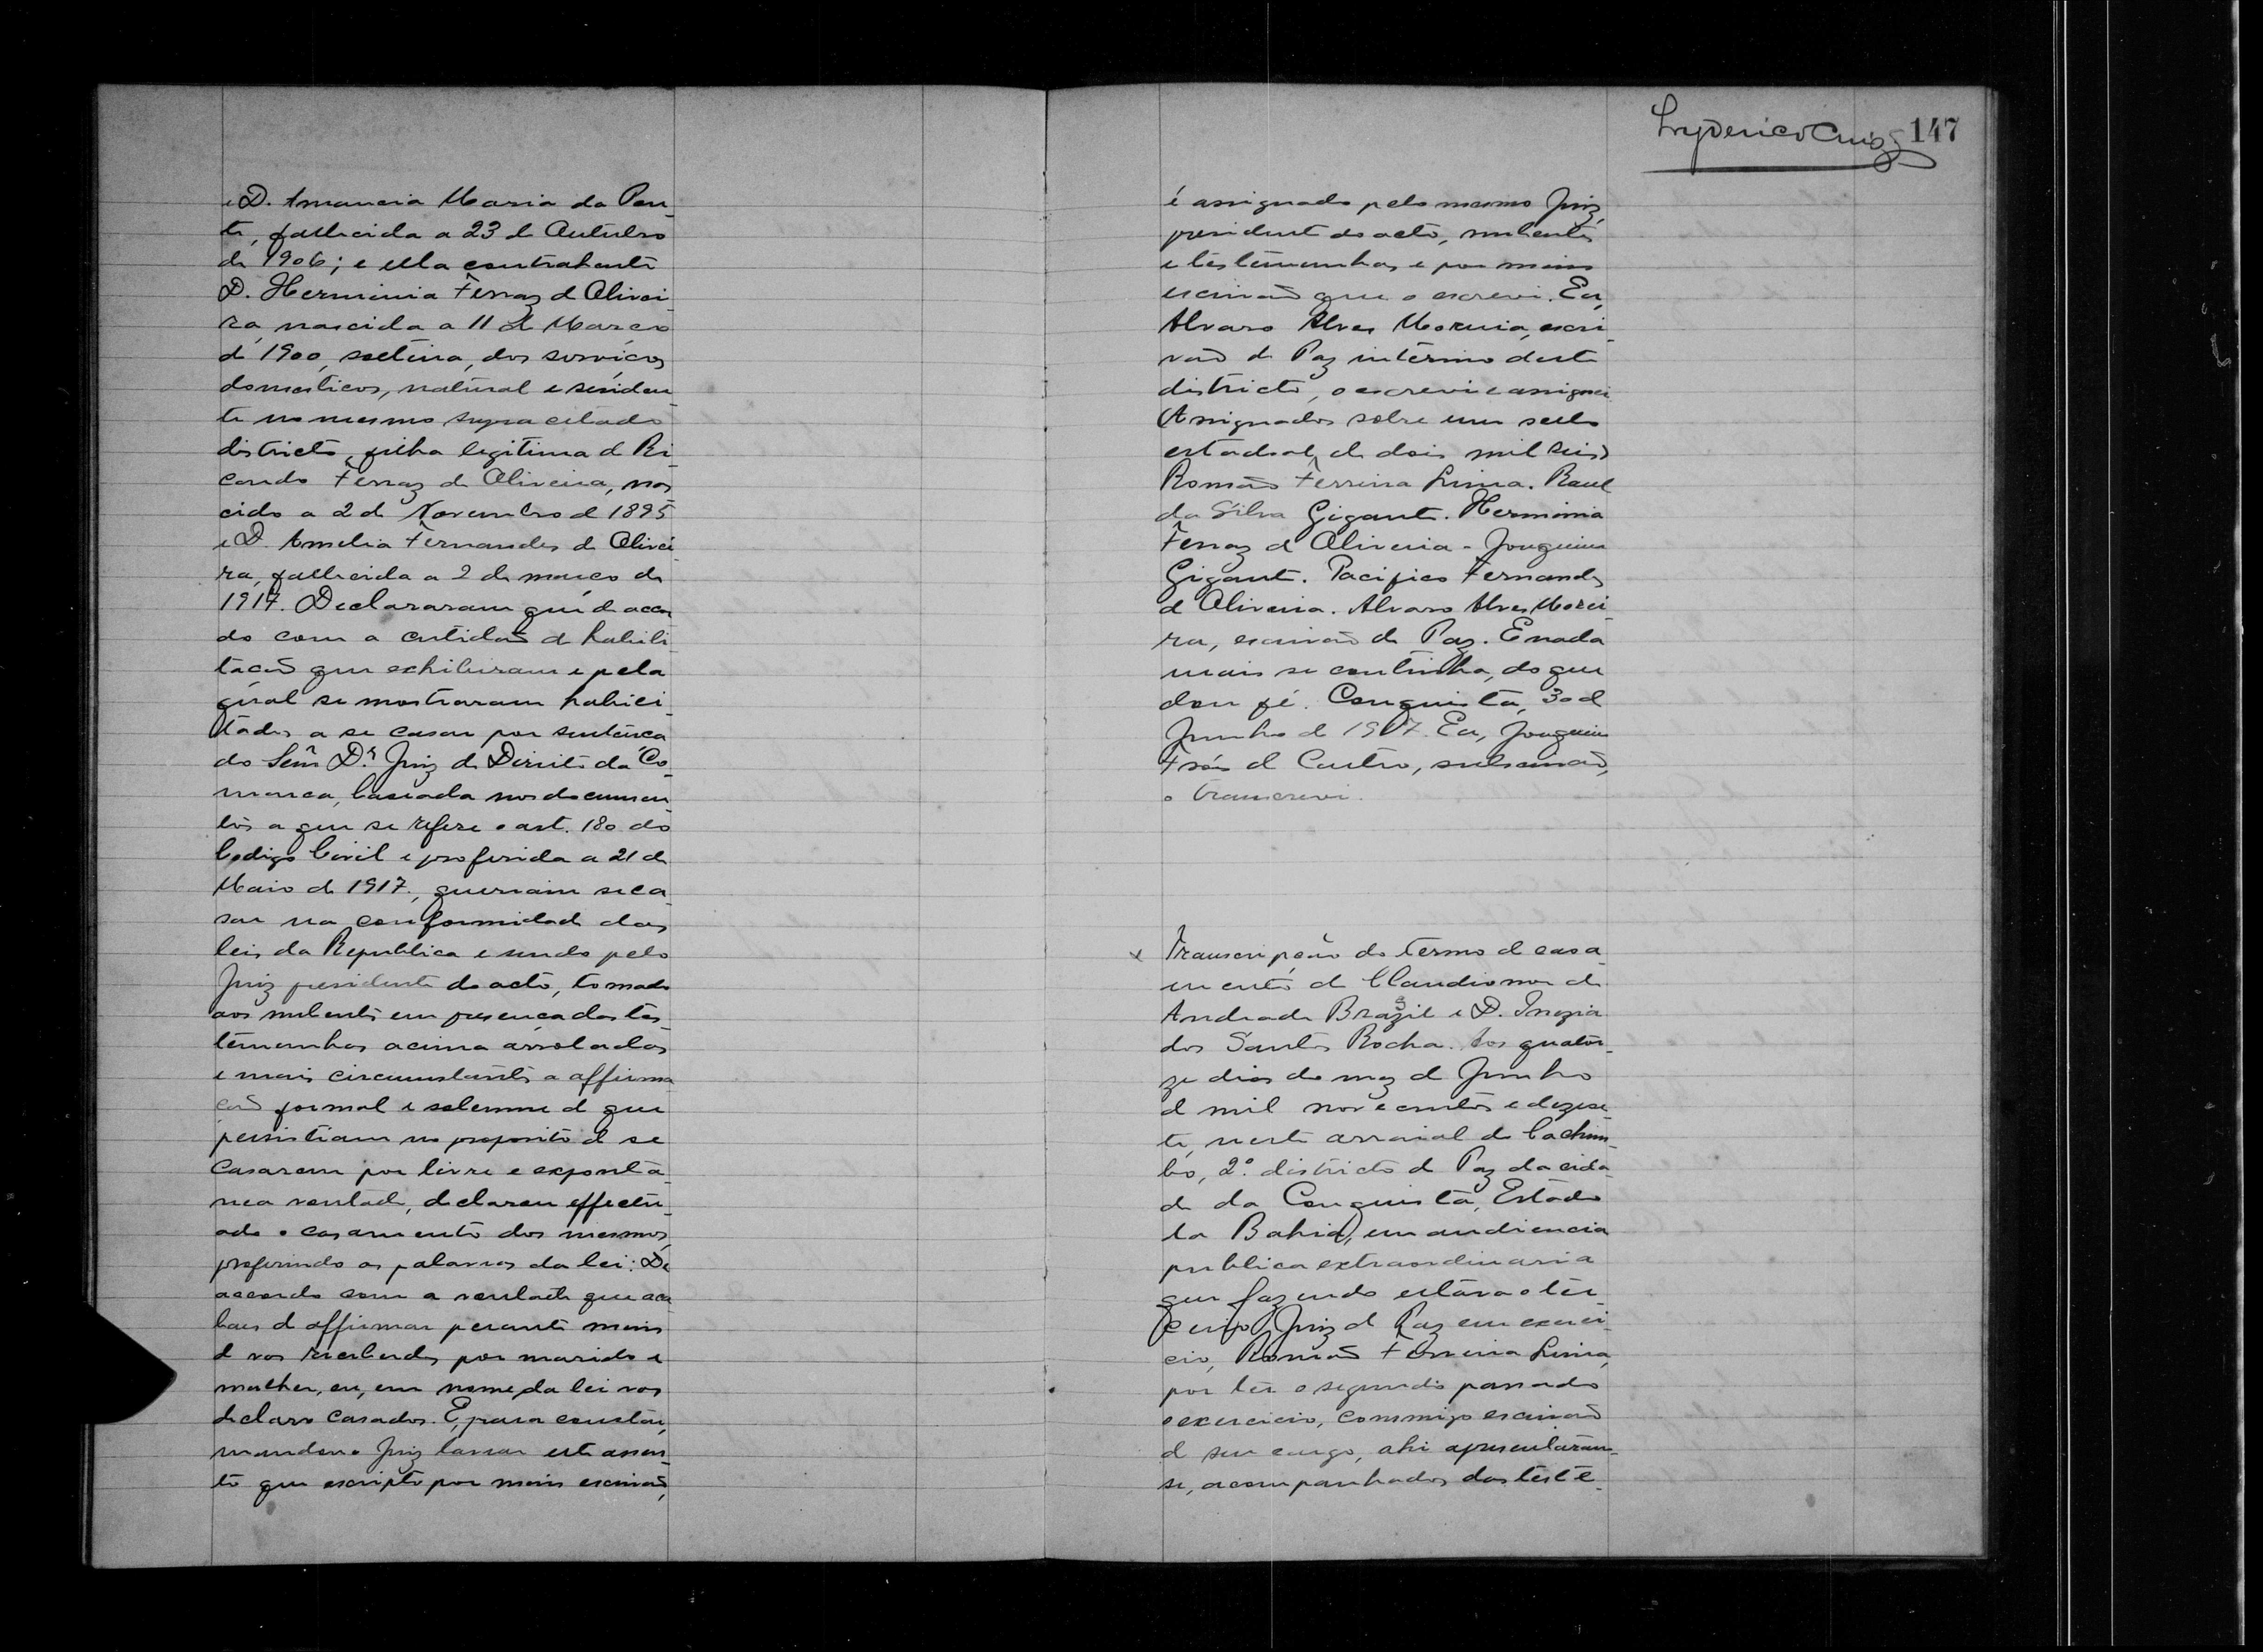 e D. Amancia Maria da Pon-
te, fallecida a 23 de Outubro
de 1906; e ella contrahente
D. Herminia Ferraz de Olivei-
ra, nascida a 11 de Março
de 1900, solteira, dos serviços
domesticos, natural e residen-
te no mesmo supra citado
districto, filha legitima de Ri-
cardo Ferraz de Oliveira, nas-
cido a 2 de Novembro de 1895
e D. Amelia Fernandes de Olivei-
ra, fallecida a 2 de março de
1917. Declararam que de accor-
do com a certidão de habili-
tação que exhibiram e pela
qual se mostraram habili-
tados a se casar por sentença
do Senr. Dr. Juiz de Direito da Co-
marca, baseada nos documen-
tos a que se refere o art. 180 do
Codigo Civil e proferida a 21 de
Maio de 1917, queriam se ca-
sar na conformidade das
leis da Republica e sendo pelo
Juiz presidente do acto, tomado
aos nubentes em presença das tes-
temunhas acima arroladas
e mais circumstantes a affirma-
ção formal e solemne de que
persistiam no proposito de se
casarem por livre e exponta-
nea vontade, declarou effectu-
ado o casamento dos mesmos,
proferindo as palavras da lei: De
accordo com a vontade que aca-
baes de affirmar perante mim
de vos receberdes por marido e
mulher, eu, em nome da lei vos
declaro casados. E, para constar,
mandou o Juiz lavrar este assen-
to que escripto por mim escrivão,
147
é assignado pelo mesmo Juiz,
presidente do acto, nubentes
e testemunhas e por mim
escrivão que o escrevi. Eu,
Alvaro Alves Moreira, escri-
vão de Paz interino deste
districto, o escrevi e assignei.
(Assignados sobre um sello
estadoal de dois mil reis)
Romão Ferreira Lima. Raul
da Silva Gigante. Herminia
Ferraz de Oliveira - Joaquim
Gigante. Pacifico Fernandes
de Oliveira. Alvaro Alves Morei-
ra, escrivão de Paz. E nada
mais se continha, do que
dou fé. Conquista, 30 de
Junho de 1917. Eu, Joaquim
Fróis de Castro, subscrivão,
o transcrevi.
x Transcripção do termo de casa-
mento de Claudionor de
Andrade Brazil e D. Inezia
dos Santos Rocha. Aos quator-
ze dias do mez de Junho
de mil novecentos e dezese-
te, neste arraial do Cachim-
bo, 2º districto de Paz da cida-
de da Conquista, Estado
da Bahia, em audiencia
publica extraordinaria
que fazendo estava o ter-
ceiro Juiz de Paz em exerci-
cio, Romão Ferreira Lima,
por ter o segundo passado
o exercicio, commigo escrivão
de seu cargo, ahi apresentaram-
se, acompanhados das teste-